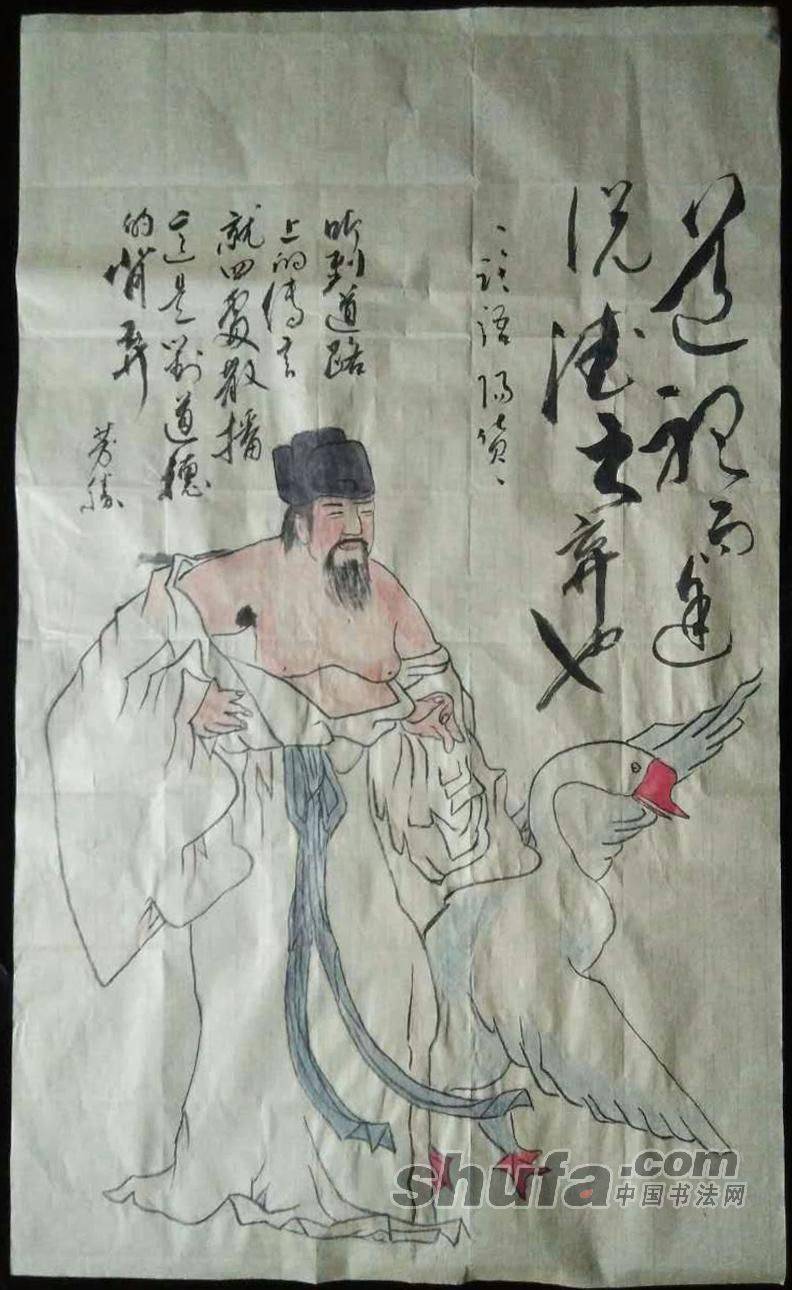 道聽而途
说德之弃也
、、论语阳货、、
听到道路
上的傳言
就四處散播
这是對道德
的背弃
shufa.com
中国书法网